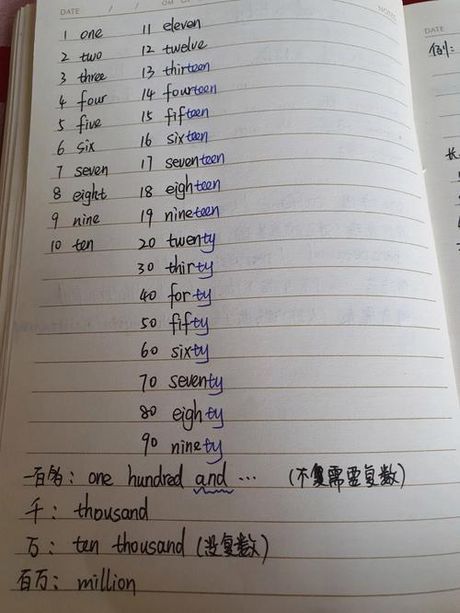 DATE / /
1 one 11 eleven
2 two 12 twelve
3 three 13 thirteen
4 four 14 fourteen
5 five 15 fifteen
6 six 16 sixteen
7 seven 17 seventeen
8 eight 18 eighteen
9 nine 19 nineteen
10 ten 20 twenty
30 thirty
40 forty
50 fifty
60 sixty
70 seventy
80 eighty
90 ninety
一百多: one hundred and ... (不需要复数)
千: thousand
万: ten thousand (没复数)
百万: million
DATE
例:
长